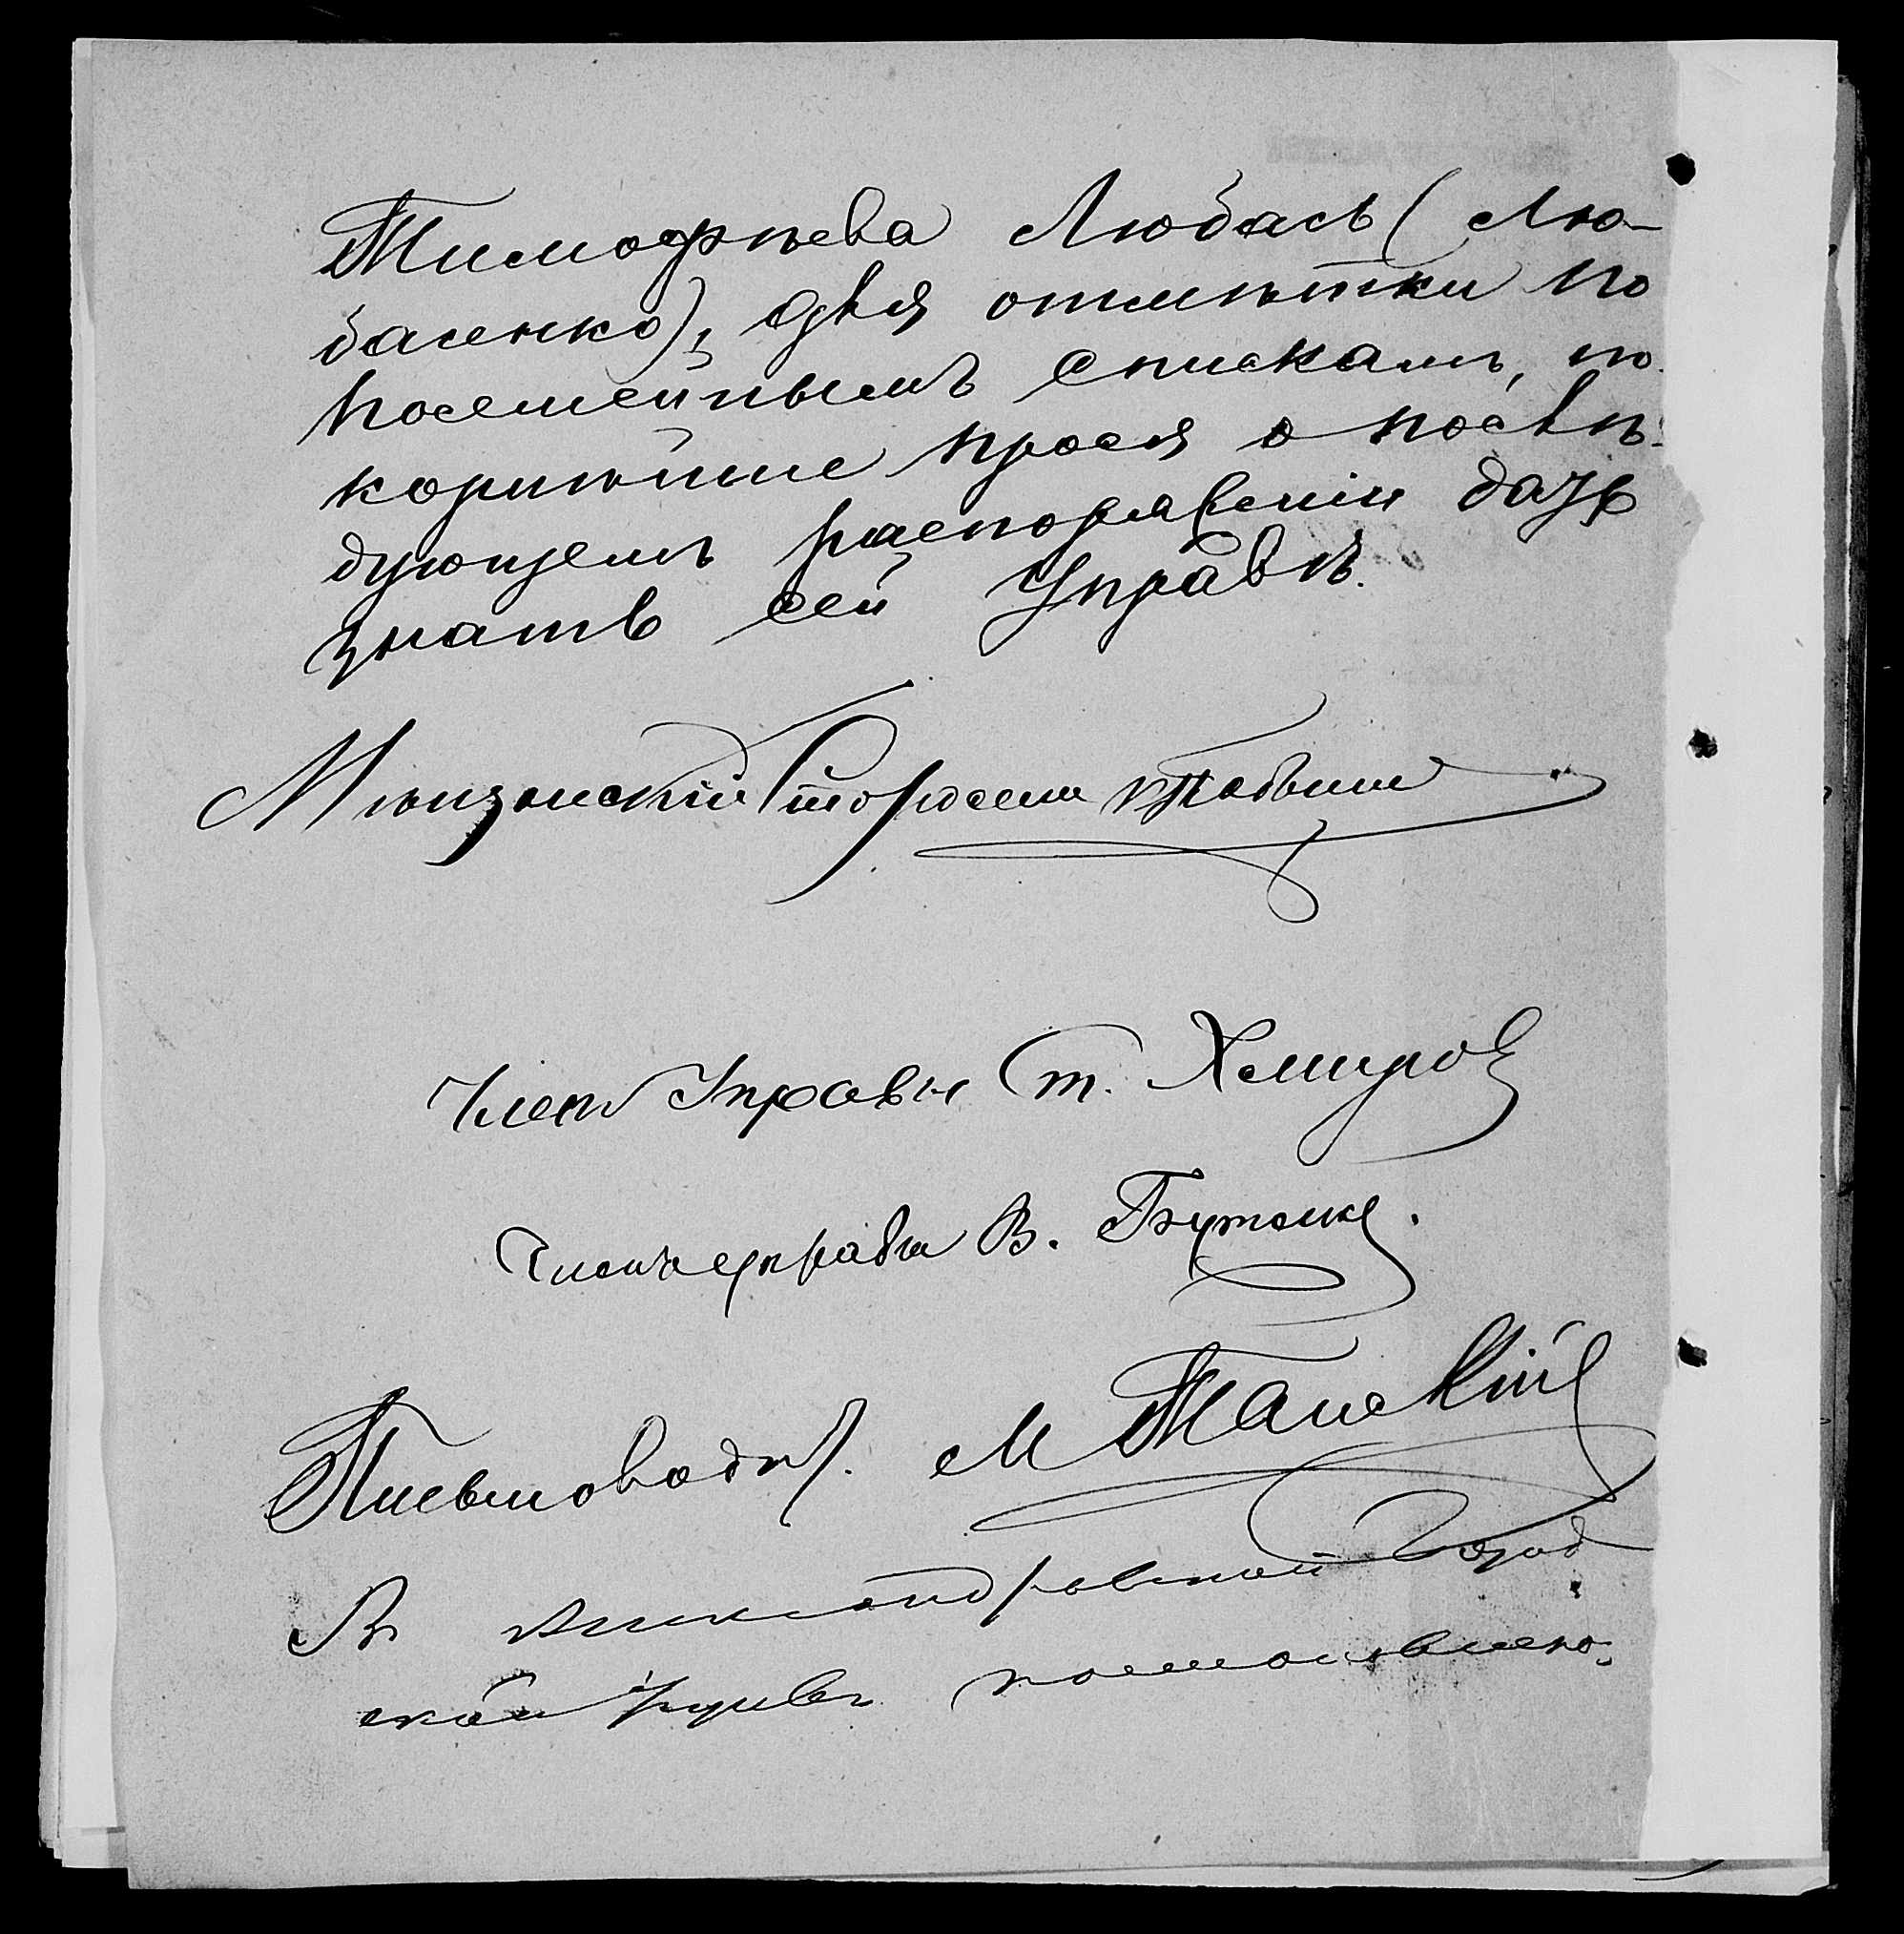 Тимофѣева Любась (Лю-
басенко), для отмѣтки по
посемейнымъ спискамъ, по-
корнѣйше прося о послѣ-
дующемъ распоряженіи дать
знать сей Управѣ.
Мѣщанскій Староста
Членъ Управы Ст. Хмыров
Членъ управы В. Бутенко.
Письмоводит. М Танскій
В Александровской Город
ской Управѣ